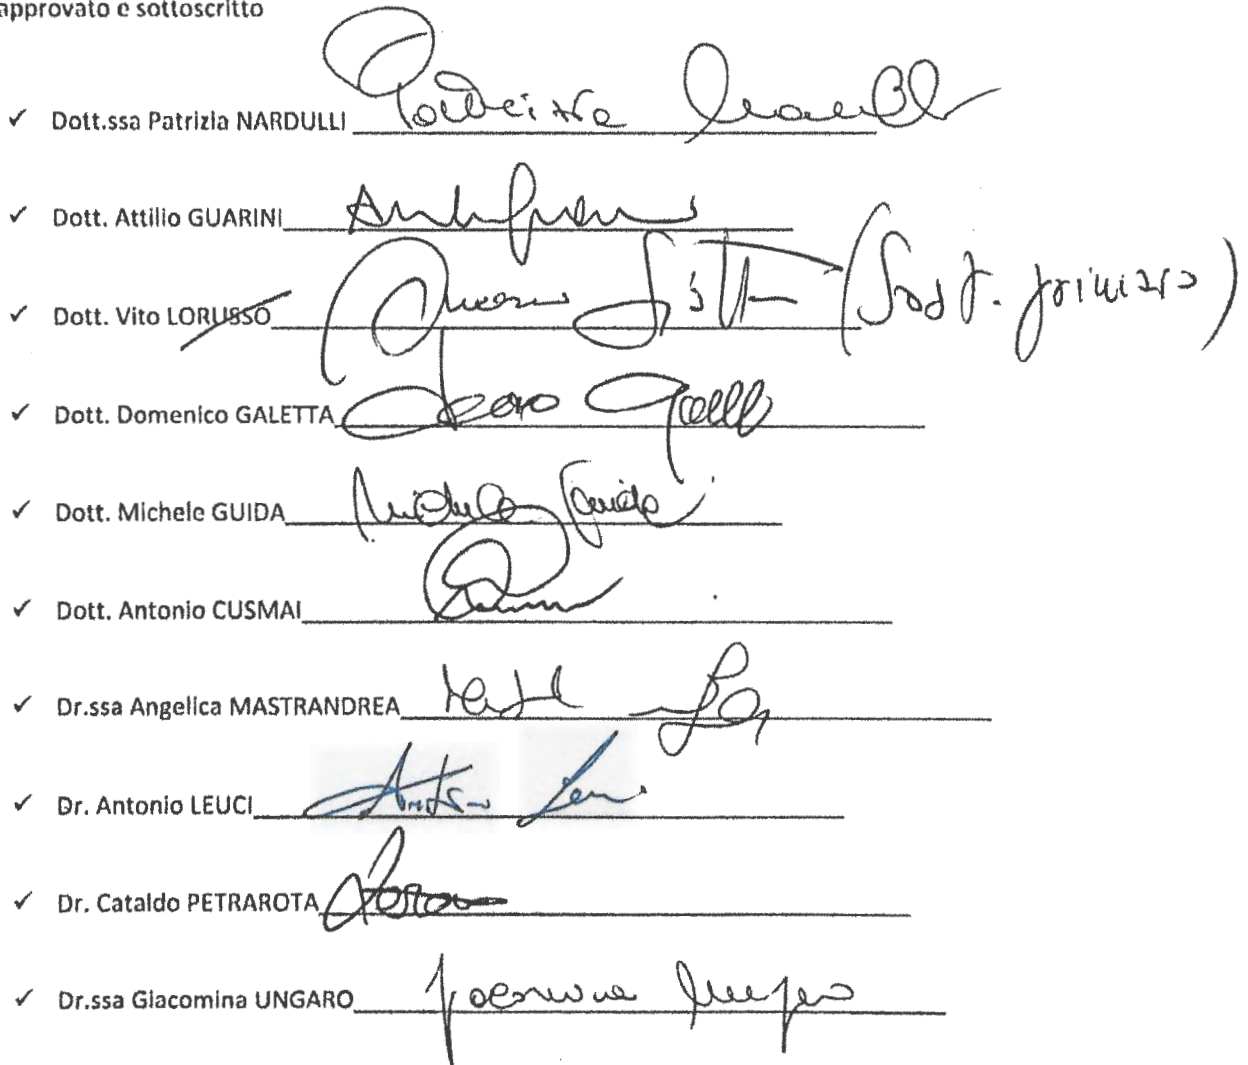 approvato e sottoscritto
✓ Dott.ssa Patrizia NARDULLI Patrizia Nardulli
✓ Dott. Attilio GUARINI
✓ Dott. Vito LORUSSO (Sost. primario)
✓ Dott. Domenico GALETTA
✓ Dott. Michele GUIDA Michele Guida
✓ Dott. Antonio CUSMAI
✓ Dr.ssa Angelica MASTRANDREA
✓ Dr. Antonio LEUCI Antonio Leuci
✓ Dr. Cataldo PETRAROTA
✓ Dr.ssa Giacomina UNGARO Giacomina Ungaro